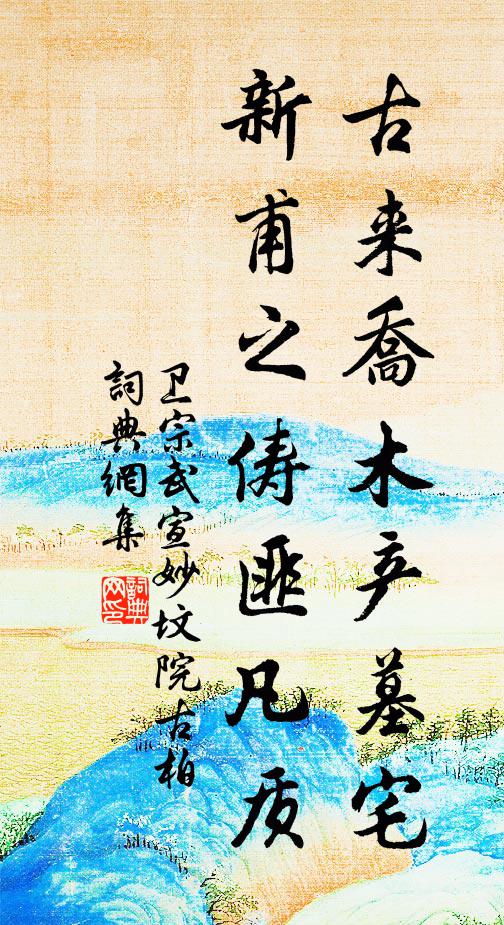 古来喬木产墓宅
新甫之俦匪凡质
卫宗武宣妙坟院古柏
詞典網集
詞典網印